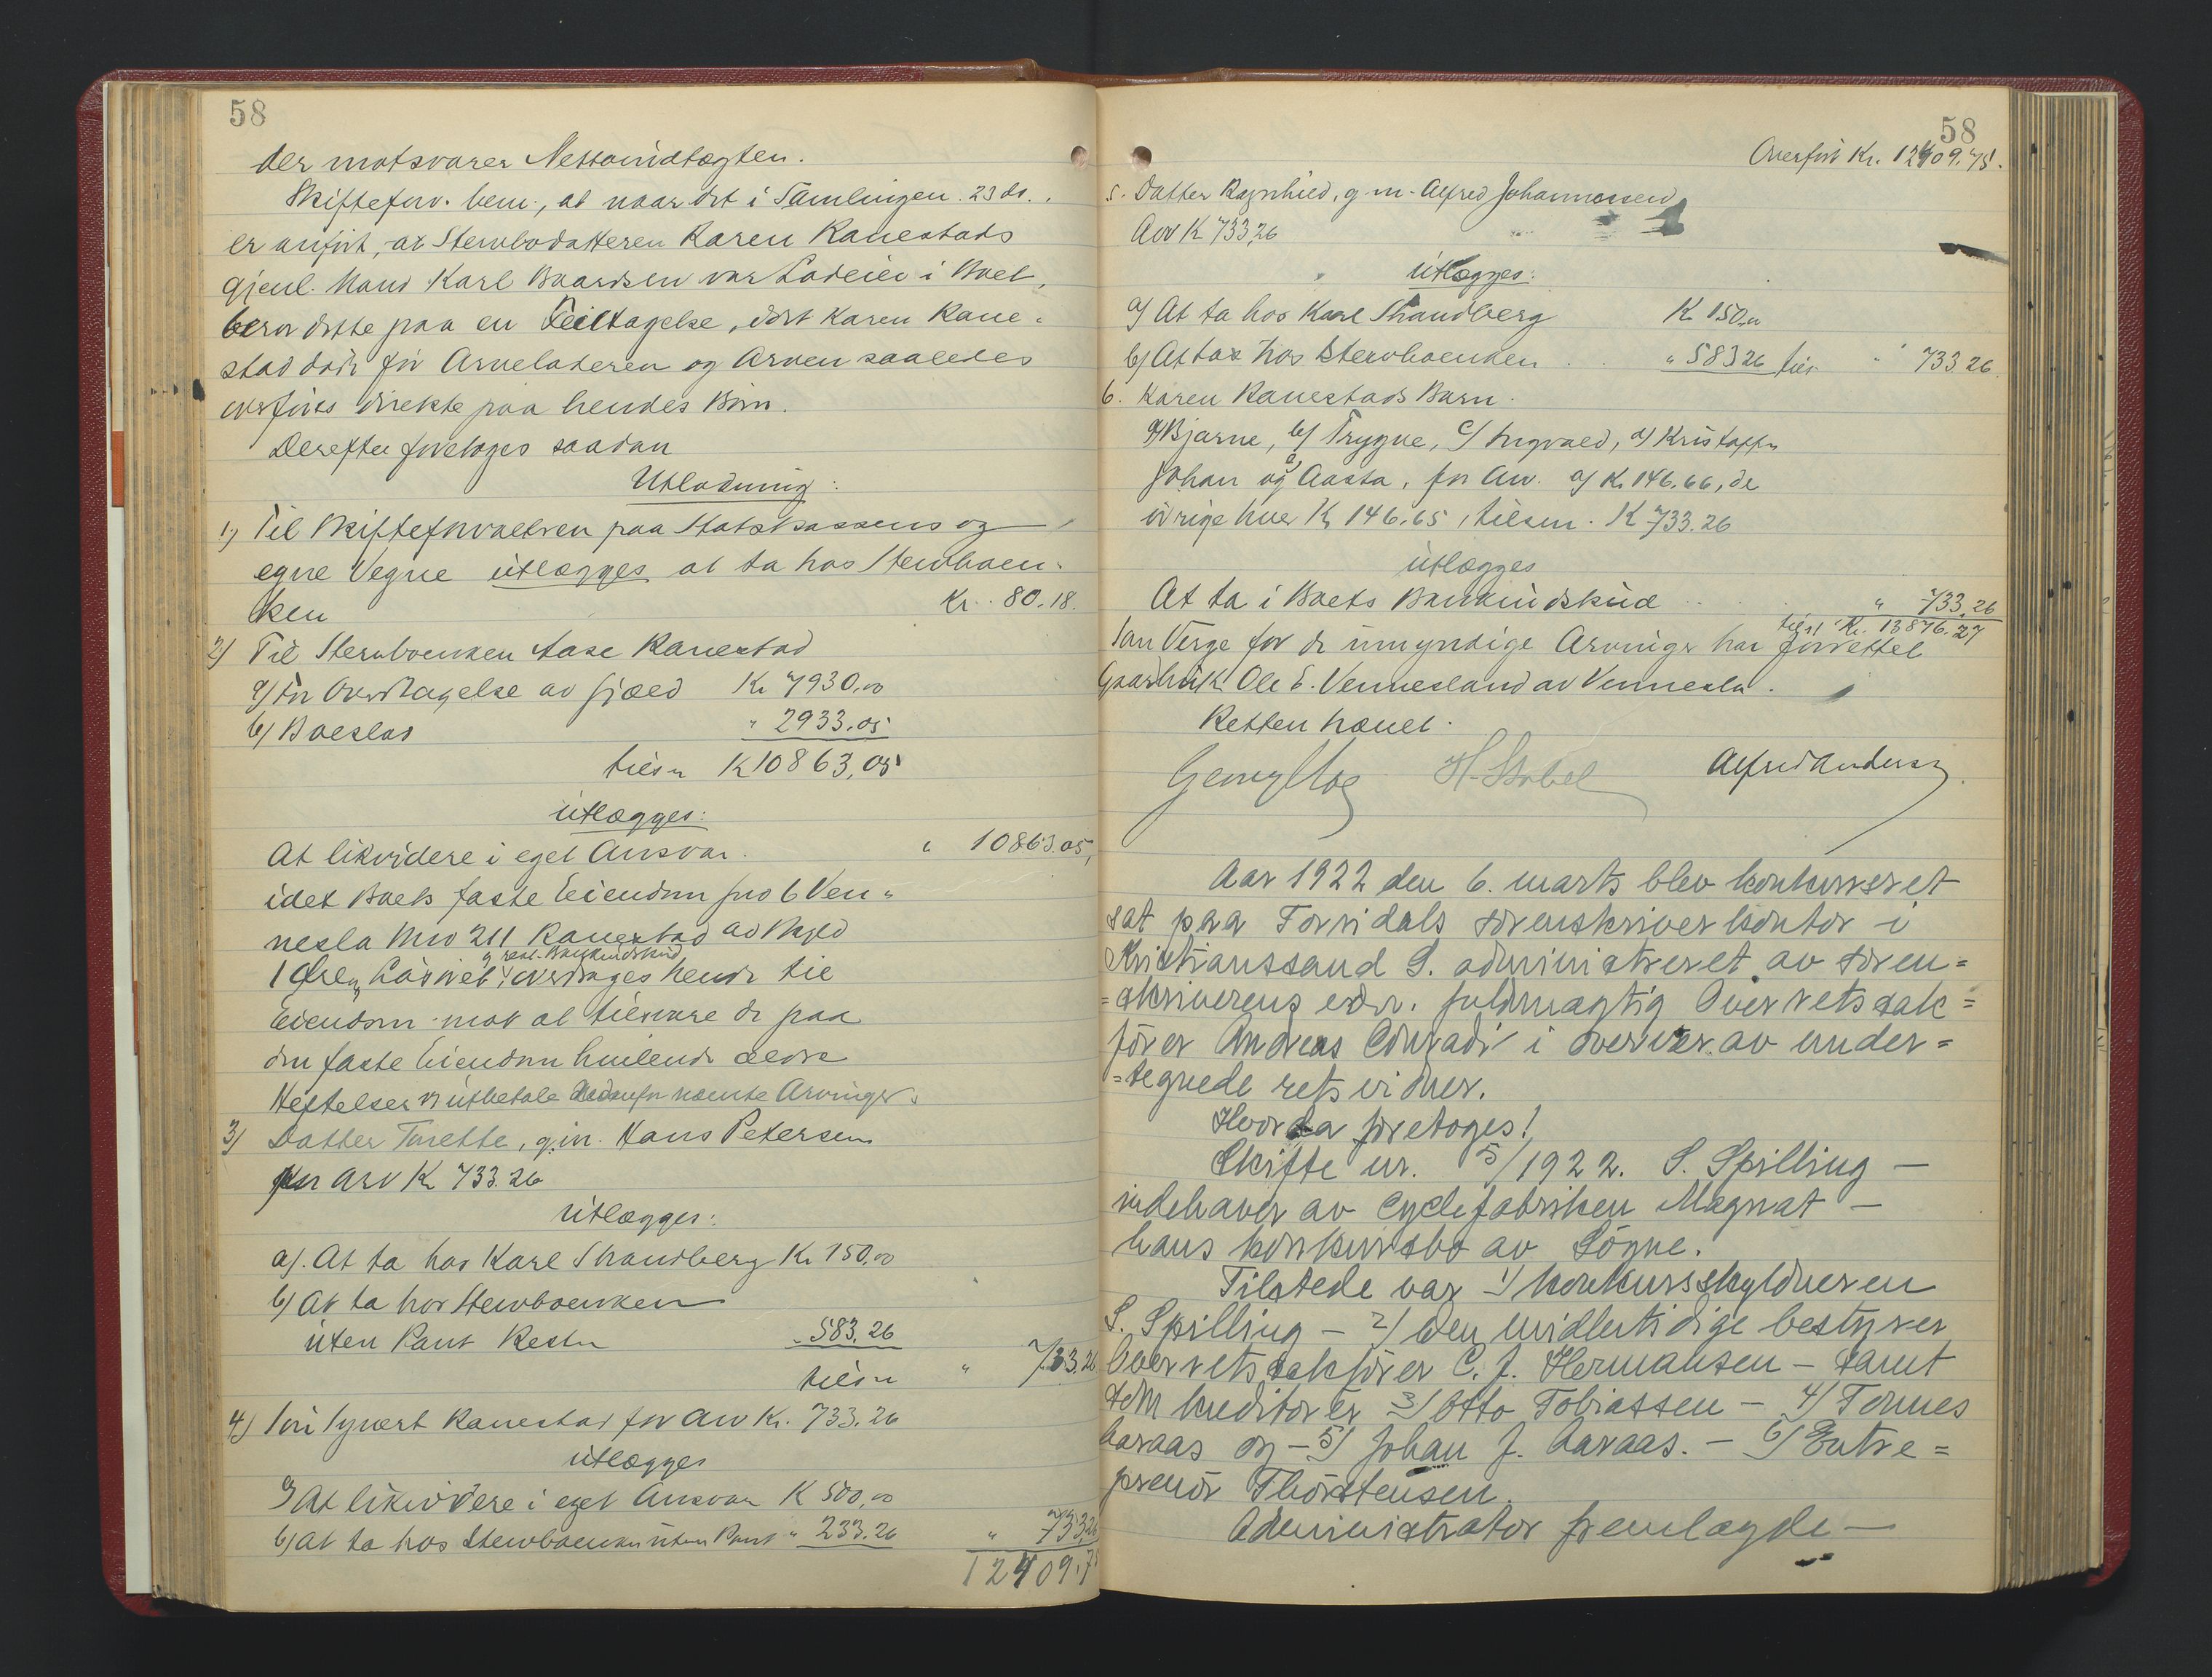 58
der motsvarer Nettoindtægten.
Skifteforv. bem., at naar det i Samlingen 23 ds.
er anført, at Stervbodatteren Karen Ranestads
gjenl. Mand Karl Baardsen var Lodeier i Boet,
beror dette paa en Feiltagelse, idet Karen Rane-
stad døde før Arveladeren og Arven saaledes
overføres direkte paa hendes Børn.
Derefter foretoges saadan
Utlodning:
1) Til Skifteforvalteren paa Statskassens og
egne Vegne utlægges at ta hos Stervboen-
ken Kr. 80.18.
2) Til Stervboenken Aase Ranestad
a) For Overtagelse av Gjæld Kr 7930,00
b) Boeslod " 2933.05
tilsn K 10863,05
utlægges:
At likvidere i eget Ansvar. " 10863.05,
idet Boets faste Eiendom gno 6 Ven-
nesla bno 211 Ranestad av Skyld
1 Øre, Løsøret og rest. Bankindskud overdrages hende til
Eiendom mot at tilsvare de paa
den faste Eiendom hvilende ældre
Heftelser og utbetale nedenfor nævnte Arvinger.
3) Datter Torette, g.m. Hans Petersen
for Arv K 733.26
utlægges:
a). At ta hos Karl Strandberg Kr 150,00
b) At ta hos Stervboenken
uten Pant Resten " 583.26
tilsn " 733.26
4) Søn Syvert Ranestad for Arv Kr. 733.26
utlægges
a) At likvidere i eget Ansvar K 500,00
b) At ta hos Stervboenken uten Pant " 233.26 " 733,26
12409.75
58
Overført Kr. 12409.75.
5. Datter Ragnhild, g.m. Alfred Johannessen
Arv K 733,26
utlægges:
a) At ta hos Karl Strandberg K 150,00
b) At ta hos Stervboenken " 583 26 tils. " 733 26
6. Karen Ranestads Barn.
a) Bjarne, b) Trygve, c) Ingvald, d) Kristoffer
Johan og e) Aasta, for Arv. a) K. 146.66, de
øvrige hver K 146.65, tilsm. K 733.26
utlægges
At ta i Boets Bankindskud " 733,26
tilst Kr. 13876.27
Som Verge for de umyndige Arvinger har forrettet
Gaardbruk. Ole E. Vennesland av Vennesla.
Retten hævet.
Georg Hoe H. Stabel Alfred Andersen
Aar 1922 den 6. marts blev konkursret
sat paa Torridals sorenskriverkontor i
Kristianssand S. administreret av soren-
=skriverens edsv. fuldmægtig Overretssak=
fører Andreas Conradi i overvær av under=
=tegnede retsvidner.
Hvorda foretoges:
Skifte nr. 5/1922. S. Spilling –
indehaver av Cyclefabriken Magnat –
hans konkursbo av Søgne.
Tilstede var 1) konkursskyldneren
S. Spilling – 2) den midlertidige bestyrer
Overretssakfører C. J. Hermansen – samt
som kreditorer 3) Otto Tobiassen – 4) Tonnes
Aaraas og – 5) Johan J. Aaraas. – 6) Entre=
prenør Thorstensen.
Administrator fremlagde –